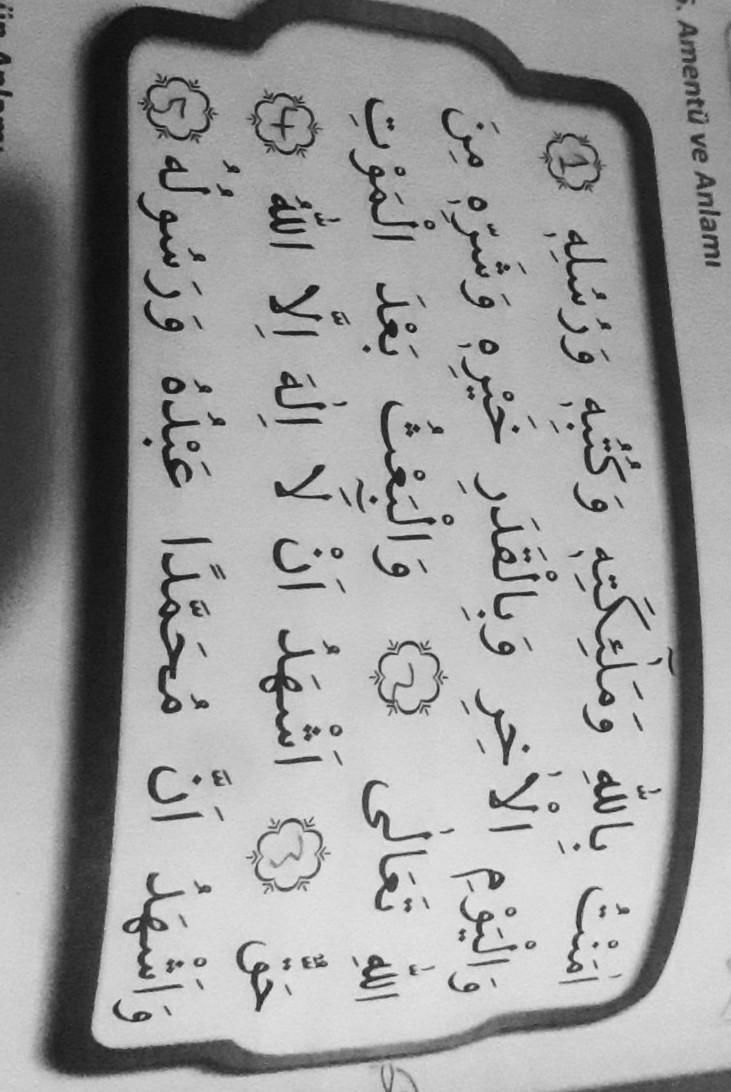 5. Amentü ve Anlamı
اٰمَنْتُ بِاللّٰهِ وَمَلٰٓئِكَتِهٖ وَكُتُبِهٖ وَرُسُلِهٖ 1
وَالْيَوْمِ الْاٰخِرِ وَبِالْقَدَرِ خَيْرِهٖ وَشَرِّهٖ مِنَ
اللّٰهِ تَعَالٰى 2 وَالْبَعْثُ بَعْدَ الْمَوْتِ
حَقٌّ 3 اَشْهَدُ اَنْ لَا اِلٰهَ اِلَّا اللّٰهُ 4
وَاَشْهَدُ اَنَّ مُحَمَّدًا عَبْدُهُ وَرَسُولُهُ 5